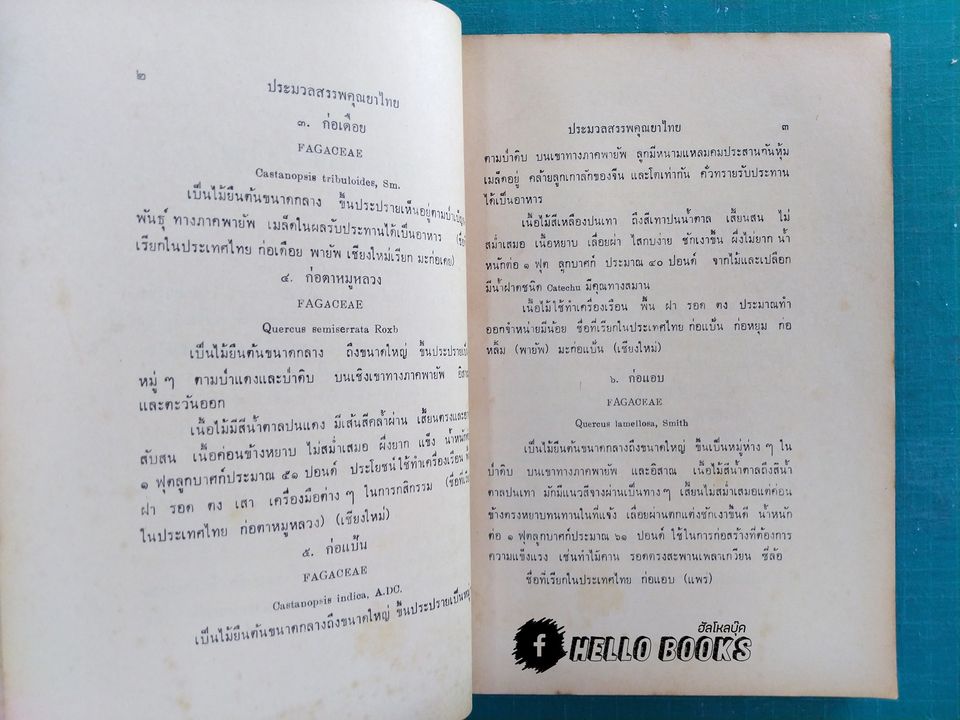 ๒
ประมวลสรรพคุณยาไทย
๓. ก่อเดือย
FAGACEAE
Castanopsis tribuloides, Sm.
เป็นไม้ยืนต้นขนาดกลาง ขึ้นประปรายเห็นอยู่ตามป่า
พันธุ์ ทางภาคพายัพ เมล็ดในผลรับประทานได้เป็นอาหาร
เรียกในประเทศไทย ก่อเดือย พายัพ เชียงใหม่เรียก มะก่อเดย)
๔. ก่อตาหมูหลวง
FAGACEAE
Quercus semiserrata Roxb
เป็นไม้ยืนต้นขนาดกลาง ถึงขนาดใหญ่ ขึ้นประปราย
หมู่ ๆ ตามป่าแดงและป่าดิบ บนเชิงเขาทางภาคพายัพ
และตะวันออก
เนื้อไม้มีสีน้ำตาลปนแดง มีเส้นสีคล้ำผ่าน เสี้ยนตรงและ
สับสน เนื้อค่อนข้างหยาบ ไม่สม่ำเสมอ ผึ่งยาก แข็ง น้ำหนัก
๑ ฟุตลูกบาศก์ประมาณ ๕๑ ปอนด์ ประโยชน์ใช้ทำเครื่องเรือน
ฝา รอด ตง เสา เครื่องมือต่าง ๆ ในการกสิกรรม
ในประเทศไทย ก่อตาหมูหลวง) (เชียงใหม่)
๕. ก่อแป้น
FAGACEAE
Castanopsis indica, A.DC.
เป็นไม้ยืนต้นขนาดกลางถึงขนาดใหญ่ ขึ้นประปรายเป็นหมู่
ประมวลสรรพคุณยาไทย ๓
ตามป่าดิบ บนเขาทางภาคพายัพ ลูกมีหนามแหลมคมประสานกันหุ้ม
เมล็ดอยู่ คล้ายลูกเกาลักของจีน และโตเท่ากัน คั่วทรายรับประทาน
ได้เป็นอาหาร
เนื้อไม้สีเหลืองปนเทา ถึงสีเทาปนน้ำตาล เสี้ยนสน ไม่
สม่ำเสมอ เนื้อหยาบ เลื่อยผ่า ไสกบง่าย ชักเงาขึ้น ผึ่งไม่ยาก น้ำ
หนักต่อ ๑ ฟุต ลูกบาศก์ ประมาณ ๔๐ ปอนด์ จากไม้และเปลือก
มีน้ำฝาดชนิด Catechu มีคุณทางสมาน
เนื้อไม้ใช้ทำเครื่องเรือน พื้น ฝา รอด ตง ประมาณทำ
ออกจำหน่ายมีน้อย ชื่อที่เรียกในประเทศไทย ก่อแป้น ก่อหยุม ก่อ
หลิ้ม (พายัพ) มะก่อแป้น (เชียงใหม่)
๖. ก่อแอบ
FAGACEAE
Quercus lamellosa, Smith
เป็นไม้ยืนต้นขนาดกลางถึงขนาดใหญ่ ขึ้นเป็นหมู่ห่าง ๆ ใน
ป่าดิบ บนเขาทางภาคพายัพ และอิสาณ เนื้อไม้สีน้ำตาลถึงสีน้ำ
ตาลปนเทา มักมีแนวสีจางผ่านเป็นทาง ๆ เสี้ยนไม่สม่ำเสมอแต่ค่อน
ข้างตรงหยาบทนทานในที่แจ้ง เลื่อยผ่านตกแต่งชักเงาขึ้นดี น้ำหนัก
ต่อ ๑ ฟุตลูกบาศก์ประมาณ ๖๑ ปอนด์ ใช้ในการก่อสร้างที่ต้องการ
ความแข็งแรง เช่นทำไม้คาน รอดตรงสะพานเพลาเกวียน ซี่ล้อ
ชื่อที่เรียกในประเทศไทย ก่อแอบ (แพร่)
ฮัลโหลบุ๊ค
HELLO BOOKS